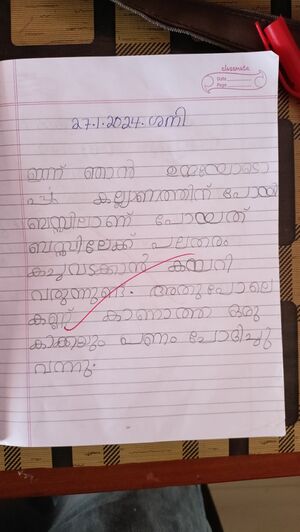 classmate
Date
Page
27.1.2024.ശനി
ഇന്ന് ഞാൻ
കല്ല്യണത്തിന് പോയി
ബസ്സിലാണ് പോയത്
ബസ്സിലേക്ക് പലതരം
കച്ചവടക്കാൻ കയറി
വരുന്നുണ്ട്. അതുപോലെ
കണ്ണ് കാണാത്ത ഒരു
പണം ചോദിച്ചു
വന്നു.